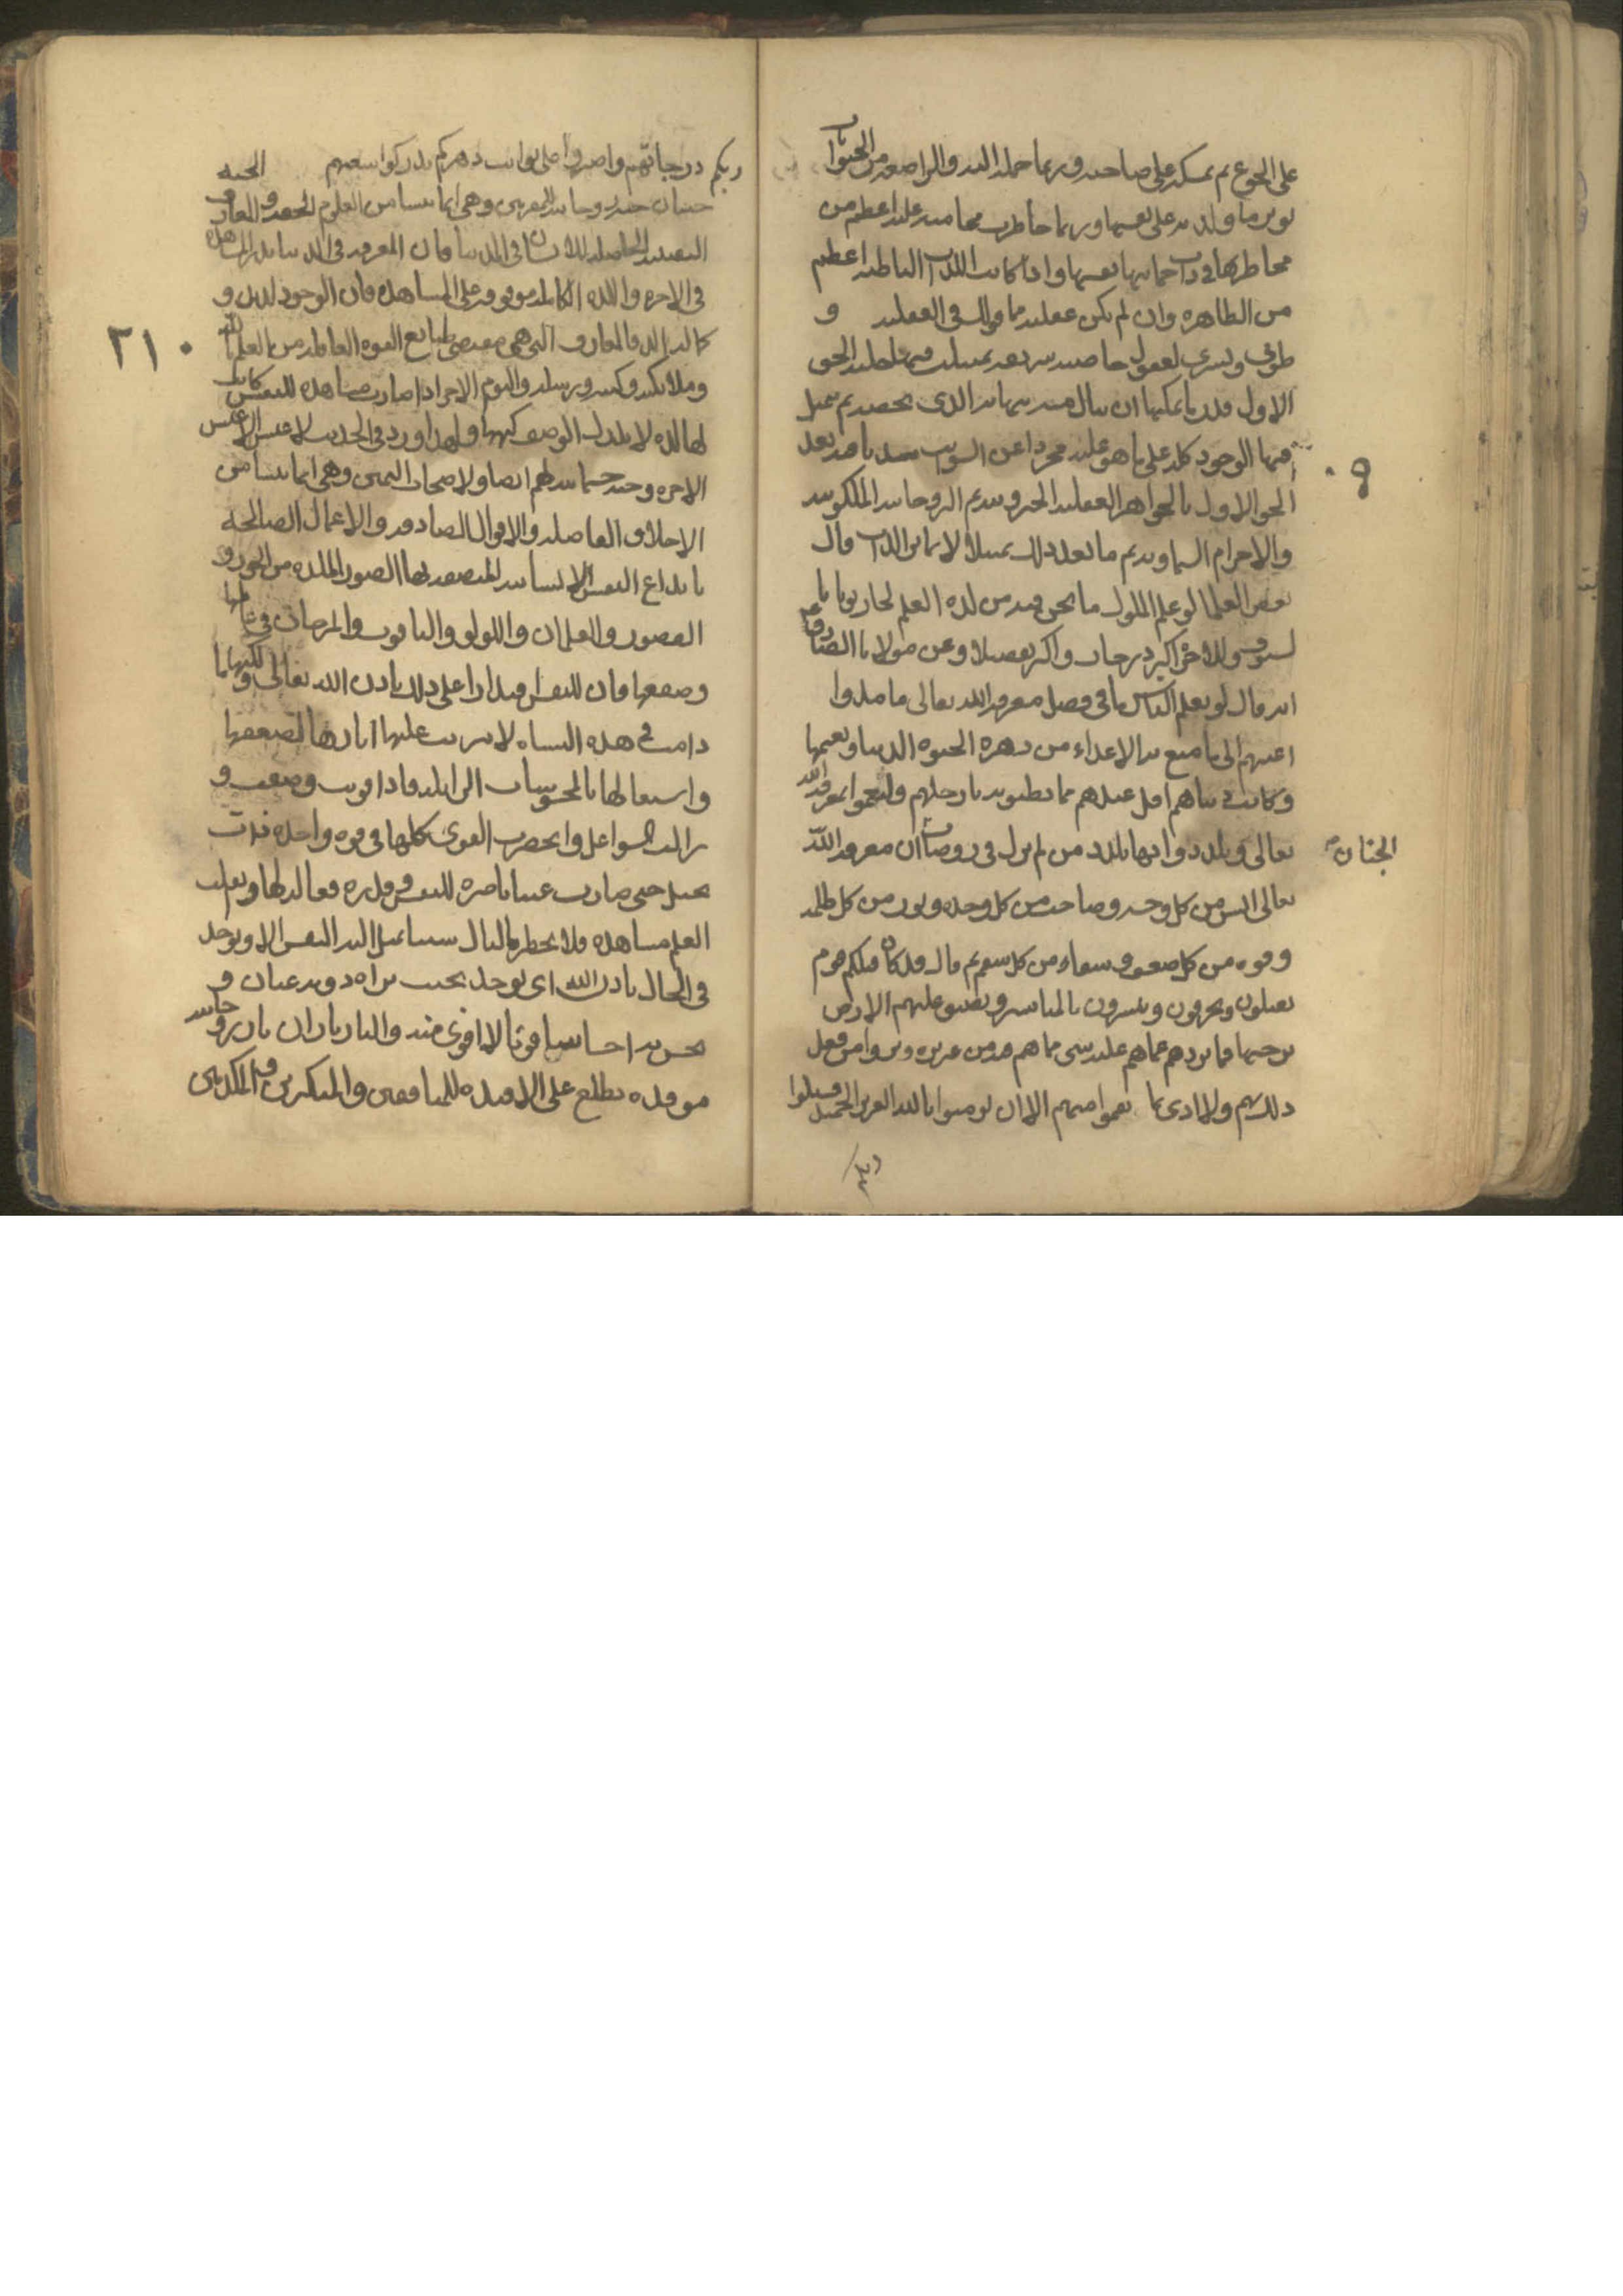 على الجوع ثم يمسكه على صاحبه وربما حمله اليه والراضعة من الحيوانات
تؤثر ما ولدته على نفسها وربما خاطرت محامية عليه اعظم من
مخاطرتها في ذات حمايتها نفسها واذا كانت اللذات الباطنة اعظم
من الظاهرة وان لم تكن عقلية فما قولك في العقلية و
الاول قدر ما يمكنها ان ينال منه ببهائه الذي يخصه ثم يتمثل
فيها الوجود كله على ما هو عليه مجردا عن الشوب مبتدءا فيه بعد
الحق الاول بالجواهر العقلية الجبروتية ثم الروحانية الملكوتية
والاجرام السماوية ثم ما بعد ذلك تمثلا لا يمايز الذات قال
بعض العلماء لو علم الملوك ما نحن فيه من لذة العلم لحاربونا با
لسيوف وللآخرة اكبر درجات واكبر تفضيلا وعن مولانا الصادق ع
انه قال لو يعلم الناس ما في فضل معرفة الله تعالى ما مدوا
اعينهم الى ما متع به الاعداء من زهرة الحيوة الدنيا ونعيمها
وكانت دنياهم اقل عندهم مما يطئونه بارجلهم ولنعموا بمعرفة الله
تعالى وتلذذوا بها تلذذ من لم يزل في روضات ان معرفة الله
الجنان
تعالى انس من كل وحشة وصاحب من كل وحدة ونور من كل ظلمة
وقوة من كل ضعف وشفاء من كل سقم ثم قال قد كان قبلكم قوم
يقتلون ويحرقون وينشرون بالمناشير وتضيق عليهم الارض
برحبها فما يردهم عماهم عليه شيء مما هم فيه من غير ترة وتروا من فعل
ذلك بهم ولا اذى بما نقموا منهم الا ان يؤمنوا بالله العزيز الحميد فسلوا
ربكم
ربكم درجاتهم واصبروا على نوائب دهركم تدركوا سعيهم الجنة
جنتان جنة روحانية للمقربين وهي انما تنشا من العلوم الحقة والمعارف
اليقينية الحاصلة للانسان في الدنيا فان المعرفة في الدنيا بذر المشاهدة
في الآخرة واللذة الكاملة موقوفة على المشاهدة فان الوجود لذيذ و
كماله الذ فالمعارف التي هي مقتضى طباع القوة العاقلة من العلم بالله
وملائكته وكتبه ورسله واليوم الآخر اذا صارت مشاهدة للنفس كانت
لها لذة لا يدرك الوصف كنهها ولهذا ورد في الحديث لا عيش الا عيش
الآخرة وجنة جسمانية لهم ايضا ولاصحاب اليمين وهي انما تنشا من
الاخلاق الفاضلة والاقوال الصادقة والاعمال الصالحة
بابداع النفس الانسانية المتصفة بها الصور الملذة من الحور و
القصور والغلمان واللؤلؤ والياقوت والمرجان في عالمها
وصقعها فان للنفس اقتدارا على ذلك باذن الله تعالى ولكنها ما
دامت في هذه النشاة لا يترتب عليها آثارها لضعفها
واشتغالها بالمحسوسات الزايلة فاذا قويت وصفت و
زالت الشواغل وانحصرت القوى كلها في قوة واحدة
تخيل حتى صارت عينا باصرة للنفس وقدرة فعالة لها وتقلب
العلم مشاهدة فلا يخطر بالبال شيئا تميل اليه النفس الا ويوجد
في الحال باذن الله اى يوجد بحيث يراه رؤية عيان و
يحس به احساسا قويا لا اقوى منه والنار ناران نار روحانية
موقدة تطلع على الافئدة للمنافقين والمتكبرين والمكذبين
٩٠
٢١٠